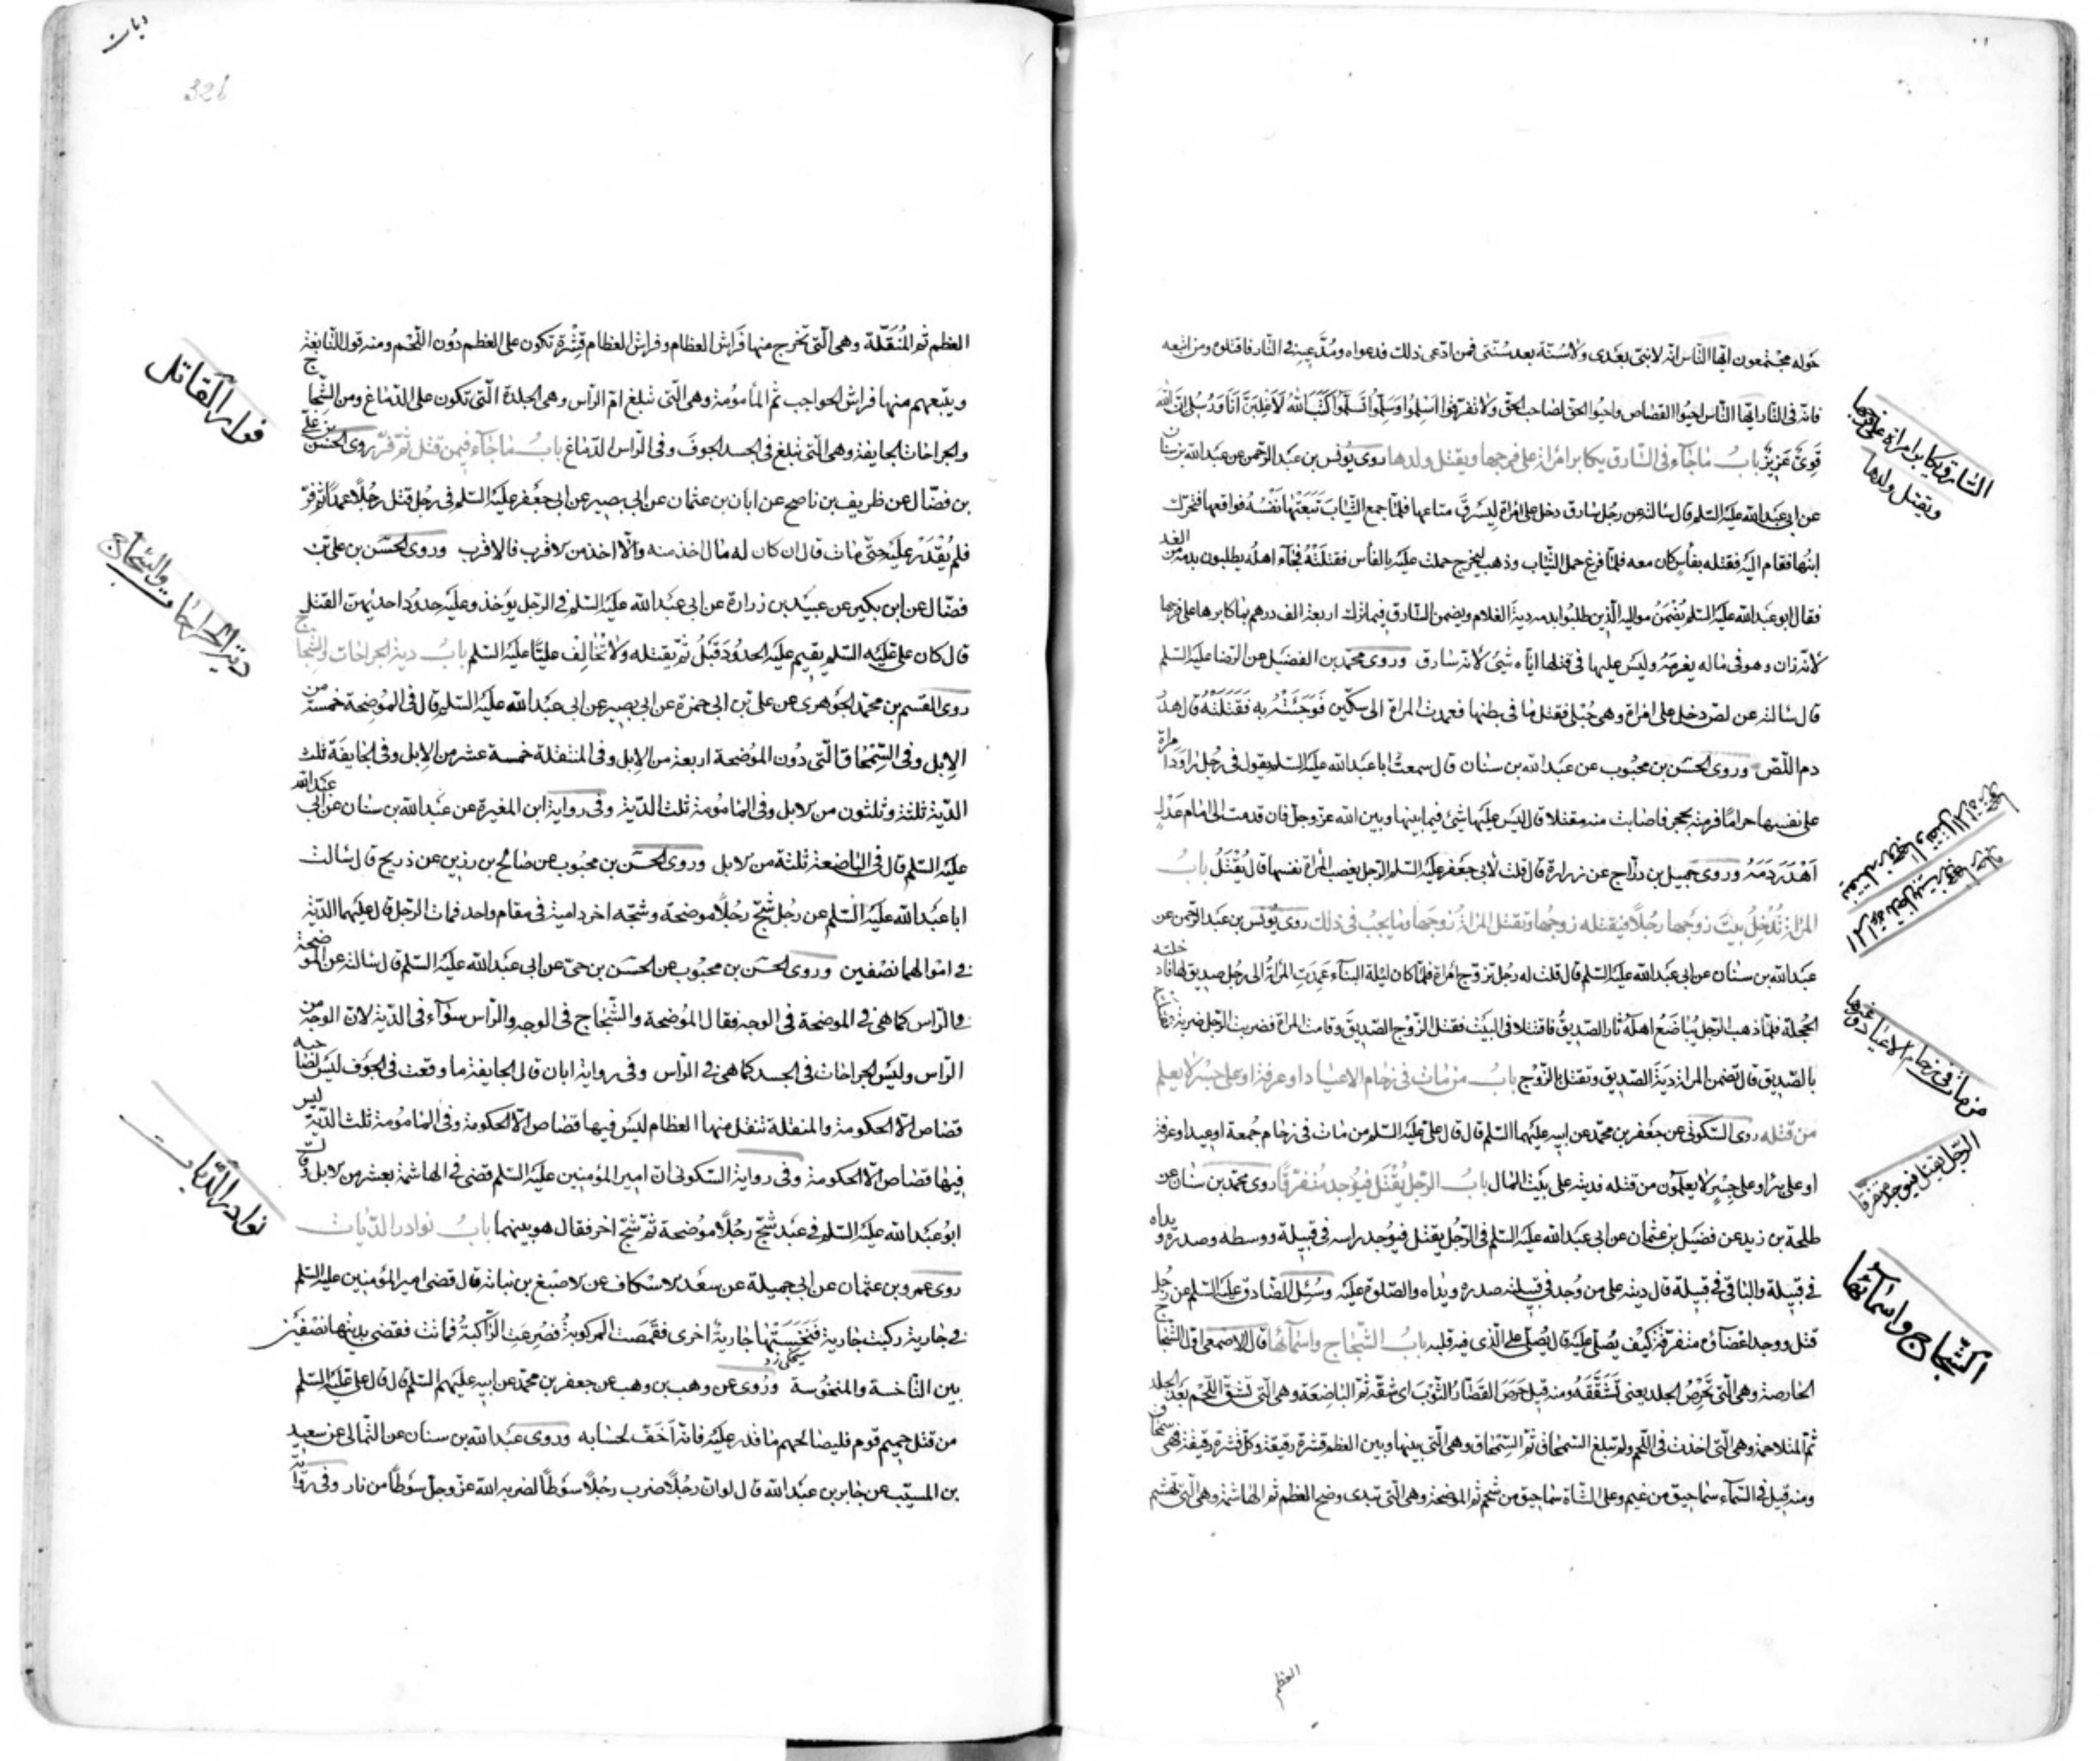 حوله مجتمعون ايها الناس انه لا نبى بعدى ولا سنة بعد سنتى فمن ادعى ذلك فدعواه ومدعيه فى النار فاقتلوه ومن اتبعه
فانه فى النار ايها الناس احيوا القصاص واحيوا الحق لصاحب الحق ولا تفرقوا اسلموا وسلموا تسلموا كتب الله لاغلبن انا ورسلى ان الله
قوى عزيز باب ما جاء فى السارق يكابر امراة على فرجها ويقتل ولدها روى يونس بن عبد الرحمن عن عبد الله بن سنان
عن ابى عبد الله عليه السلم قال سالته عن رجل سارق دخل على امراة ليسرق متاعها فلما جمع الثياب تبعتها نفسه فواقعها فتحرك
ابنها فقام اليه فقتله بفأس كان معه فلما فرغ حمل الثياب وذهب ليخرج حملت عليه بالفأس فقتلته فجاء اهله يطلبون بدمه من الغد
فقال ابو عبد الله عليه السلم يضمن مواليه الذين طلبوا بدمه دية الغلام ويضمن السارق فيما ترك اربعة الف درهم بما كابرها على فرجها
لانه زان وهو فى ماله يغرمه وليس عليها فى قتلها اياه شئ لانه سارق وروى محمد بن الفضيل عن الرضا عليه السلم
قال سالته عن لص دخل على امراة وهى حبلى فقتل ما فى بطنها فعمدت المراة الى سكين فوجئته به فقتلته قال هدر
دم اللص وروى الحسن بن محبوب عن عبد الله بن سنان قال سمعت ابا عبد الله عليه السلم يقول فى رجل راود امراة
على نفسها حراما فرمته بحجر فاصابت منه مقتلا قال ليس عليها شئ فيما بينها وبين الله عز وجل فان قدمت الى امام عدل
اهدر دمه وروى جميل بن دراج عن زرارة قال قلت لابى جعفر عليه السلم الرجل يغصب المراة نفسها قال يقتل باب
المراة تدخل بيت زوجها رجلا فيقتله زوجها وتقتل المراة زوجها وما يجب فى ذلك روى يونس بن عبد الرحمن عن
عبد الله بن سنان عن ابى عبد الله عليه السلم قال قلت له رجل تزوج امراة فلما كان ليلة البناء عمدت المراة الى رجل صديق لها فادخلته
الحجلة فلما ذهب الرجل يباضع اهله ثار الصديق فاقتتلا فى البيت فقتل الزوج الصديق وقامت المراة فضربت الرجل ضربة
بالصديق قال تضمن المراة دية الصديق وتقتل بالزوج باب من مات فى زحام الاعياد او عرفة او على جسر لا يعلم
من قتله روى السكونى عن جعفر بن محمد عن ابيه عليهما السلم قال قال على عليه السلم من مات فى زحام جمعة او عيد او عرفة
او على بئر او على جسر لا يعلمون من قتله فديته على بيت المال باب الرجل يقتل فيوجد متفرقا روى محمد بن سنان عن
طلحة بن زيد عن فضيل بن عثمان عن ابى عبد الله عليه السلم فى الرجل يقتل فيوجد راسه فى قبيلة ووسطه وصدره ويداه
فى قبيلة والباقى فى قبيلة قال ديته على من وجد فى قبيلته صدره ويداه والصلوة عليه وسئل الصادق عليه السلم عن رجل
قتل ووجد اعضاؤه متفرقة كيف يصلى عليه قال يصلى على الذى فيه قلبه باب الشجاج واسمائها قال الاصمعى اول الشجاج
الحارصة وهى التى تحرص الجلد يعنى تشققه ومنه قيل حرص القصار الثوب اى شقه ثم الباضعة وهى التى تشق اللحم بعد الجلد
ثم المتلاحمة وهى التى اخذت فى اللحم ولم تبلغ السمحاق ثم السمحاق وهى التى بينها وبين العظم قشرة رقيقة وكل قشرة رقيقة فهى سمحاق
ومنه قيل فى السماء سماحيق من غيم وعلى الشاة سماحيق من شحم ثم الموضحة وهى التى تبدى وضح العظم ثم الهاشمة وهى التى تهشم
العظم
السارق يكابر امراة على فرجها
ويقتل ولدها
من مات فى زحام الاعياد وغيرها
الرجل يقتل فيوجد متفرقا
الشجاج واسمائها
ديات
326
العظم ثم المنقلة وهى التى تخرج منها فراش العظام وفراش العظام قشرة تكون على العظم دون اللحم ومنه قول النابغة
ويتبعهم منها فراش الحواجب ثم المأمومة وهى التى تبلغ ام الراس وهى الجلدة التى تكون على الدماغ ومن الشجاج
والجراحات الجايفة وهى التى تبلغ فى الجسد الجوف وفى الراس الدماغ باب ما جاء فيمن قتل ثم فر روى الحسن بن على
بن فضال عن ظريف بن ناصح عن ابان بن عثمان عن ابى بصير عن ابى جعفر عليه السلم فى رجل قتل رجلا عمدا ثم فر
فلم يقدر عليه حتى مات قال ان كان له مال اخذ منه والا اخذ من الاقرب فالاقرب وروى الحسن بن على بن
فضال عن ابن بكير عن عبيد بن زرارة عن ابى عبد الله عليه السلم فى الرجل يؤخذ وعليه حدود احديهن القتل
قال كان على عليه السلم يقيم عليه الحدود قبل ثم يقتله ولا تخالف عليا عليه السلم باب دية الجراحات والشجاج
روى القسم بن محمد الجوهرى عن على بن ابى حمزة عن ابى بصير عن ابى عبد الله عليه السلم قال فى الموضحة خمسة من
الابل وفى السمحاق التى دون الموضحة اربعة من الابل وفى المنقلة خمسة عشر من الابل وفى الجايفة ثلث
الدية ثلثة وثلثون من الابل وفى المامومة ثلث الدية وفى رواية ابن المغيرة عن عبد الله بن سنان عن ابى عبد الله
عليه السلم قال فى الباضعة ثلثة من الابل وروى الحسن بن محبوب عن صالح بن رزين عن ذريح قال سالت
ابا عبد الله عليه السلم عن رجل شج رجلا موضحة وشجه اخر دامية فى مقام واحد فمات الرجل قال عليهما الدية
فى اموالهما نصفين وروى الحسن بن محبوب عن الحسن بن حى عن ابى عبد الله عليه السلم قال سالته عن الموضحة
فى الراس كما هى فى الموضحة فى الوجه فقال الموضحة والشجاج فى الوجه والراس سواء فى الدية لان الوجه من
الراس وليس الجراحات فى الجسد كما هى فى الراس وفى رواية ابان قال الجايفة ما وقعت فى الجوف ليس لصاحبه
قصاص الا الحكومة والمنقلة تنقل منها العظام ليس فيها قصاص الا الحكومة وفى المامومة ثلث الدية ليس
فيها قصاص الا الحكومة وفى رواية السكونى ان امير المؤمنين عليه السلم قضى فى الهاشمة بعشر من الابل وقال
ابو عبد الله عليه السلم فى عبد شج رجلا موضحة ثم شج اخر فقال هو بينهما باب نوادر الديات
روى عمرو بن عثمان عن ابى جميلة عن سعد الاسكاف عن الاصبغ بن نباتة قال قضى امير المؤمنين عليه السلم
فى جارية ركبت جارية فنخستها جارية اخرى فقمصت المركوبة فصرعت الراكبة فماتت فقضى بديتها نصفين
بين الناخسة والمنخوسة وروى عن وهب بن وهب عن جعفر بن محمد عن ابيه عليهم السلم قال قال على عليه السلم
من قتل حميم قوم فليصالحهم ما قدر عليه فانه اخف لحسابه وروى عبد الله بن سنان عن الثمالى عن سعيد
بن المسيب عن جابر بن عبد الله قال لو ان رجلا ضرب رجلا سوطا لضربه الله عز وجل سوطا من نار وفى رواية
فرار القاتل
دية الجراحات والشجاج
نوادر الديات